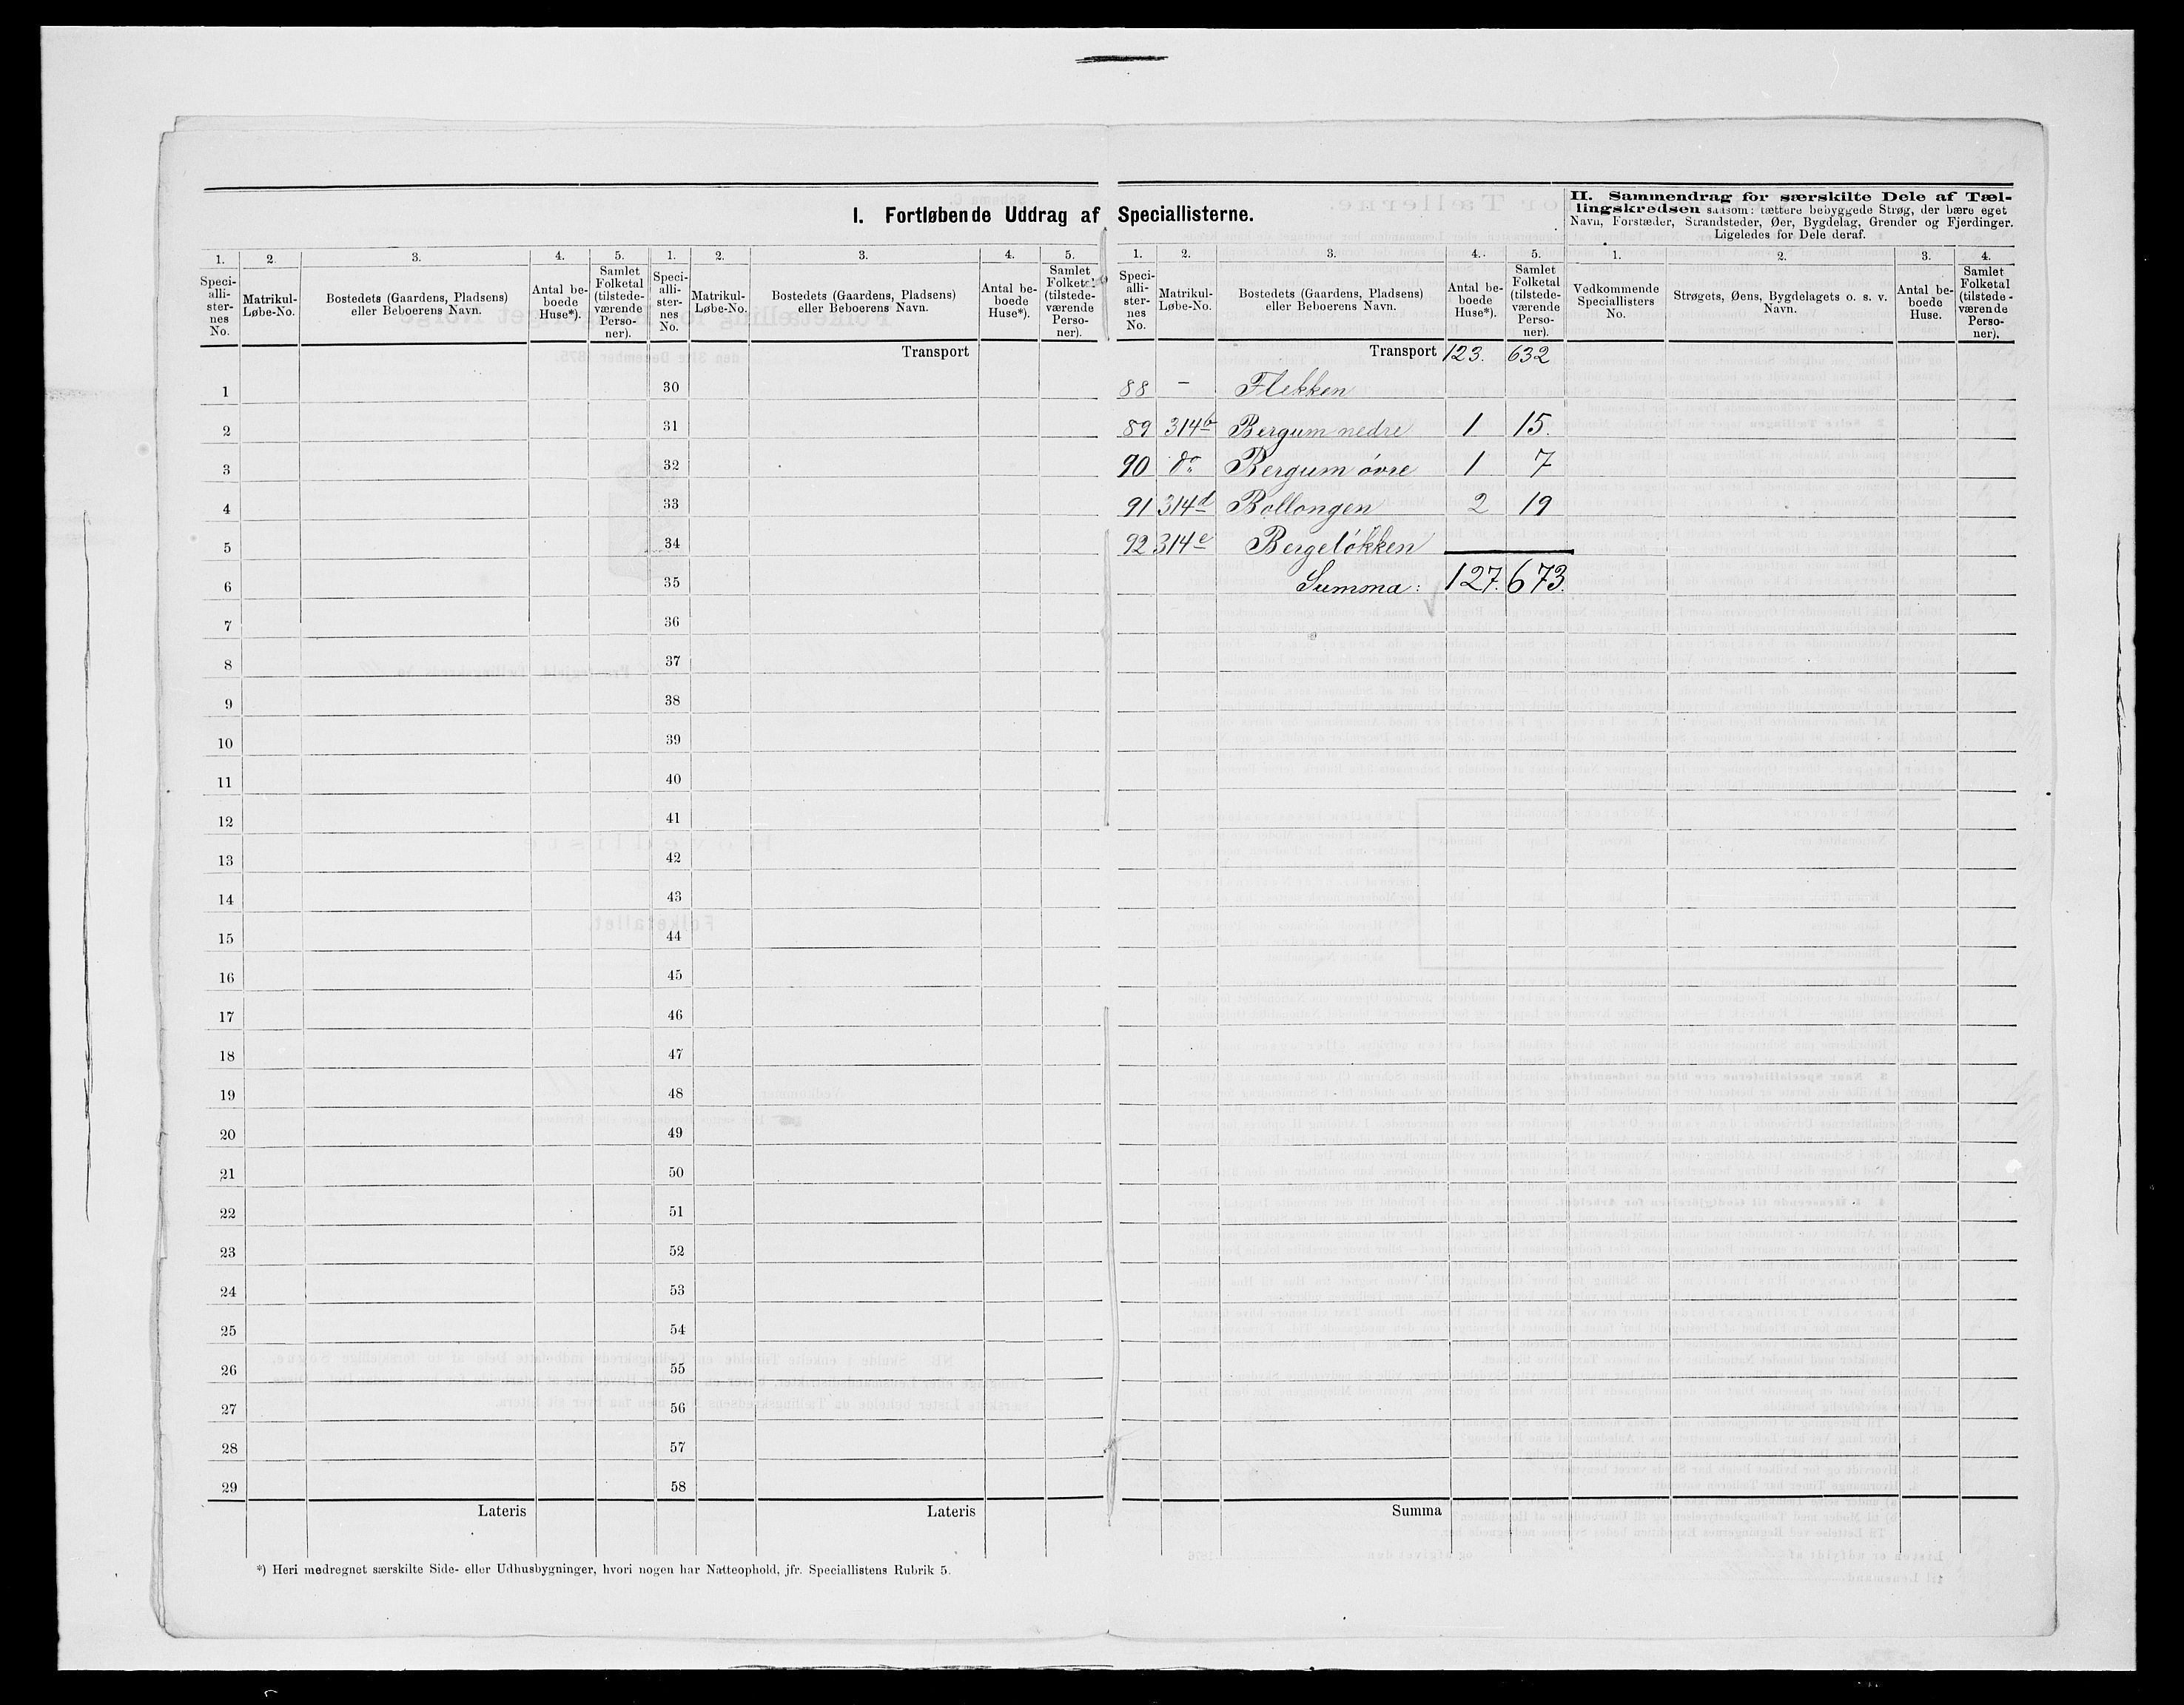 I. Fortløbende Uddrag af Speciallisterne.
II. Sammendrag for særskilte Dele af Tæl-
lingskredsen saasom: tættere bebyggede Strøg, der bære eget
Navn, Forstæder, Strandsteder, Øer, Bygdelag, Grender og Fjerdinger.
Ligeledes for Dele deraf.
1. 2. 3. 4. 5. 1. 2. 3. 4. 5. 1. 2. 3. 4. 5. 1. 2. 3. 4.
Speci-
alli-
ster-
nes
No.
Matrikul-
Løbe-No.
Bostedets (Gaardens, Pladsens)
eller Beboerens Navn.
Antal be-
boede
Huse*).
Samlet
Folketal
(tilstede-
værende
Perso-
ner).
Speci-
alli-
ster-
nes
No.
Matrikul-
Løbe-No.
Bostedets (Gaardens, Pladsens)
eller Beboerens Navn.
Antal be-
boede
Huse*).
Samlet
Folketal
(tilstede-
værende
Perso-
ner).
Speci-
alli-
ster-
nes
No.
Matrikul-
Løbe-No.
Bostedets (Gaardens, Pladsens)
eller Beboerens Navn.
Antal be-
boede
Huse*).
Samlet
Folketal
(tilstede-
værende
Perso-
ner).
Vedkommende
Speciallisters
No.
Strøgets, Øens, Bygdelagets o. s. v.
Navn.
Antal be-
boede
Huse.
Samlet
Folketal
(tilstede-
værende
Perso-
ner).
Transport
Transport 123. 632
1 30 88 – Flekken
2 31 89 314b Bergum nedre 1 15.
3 32 90 do Bergum øvre 1 7
4 33 91 314d Bollongen 2 19
5 34 92 314e Bergeløkken
6 35 Summa: 127. 673.
7 36
8 37
9 38
10 39
11 40
12 41
13 42
14 43
15 44
16 45
17 46
18 47
19 48
20 49
21 50
22 51
23 52
24 53
25 54
26 55
27 56
28 57
29 58
Lateris Lateris Summa
*) Heri medregnet særskilte Side- eller Udhusbygninger, hvori nogen har Natteophold, jfr. Speciallistens Rubrik 5.